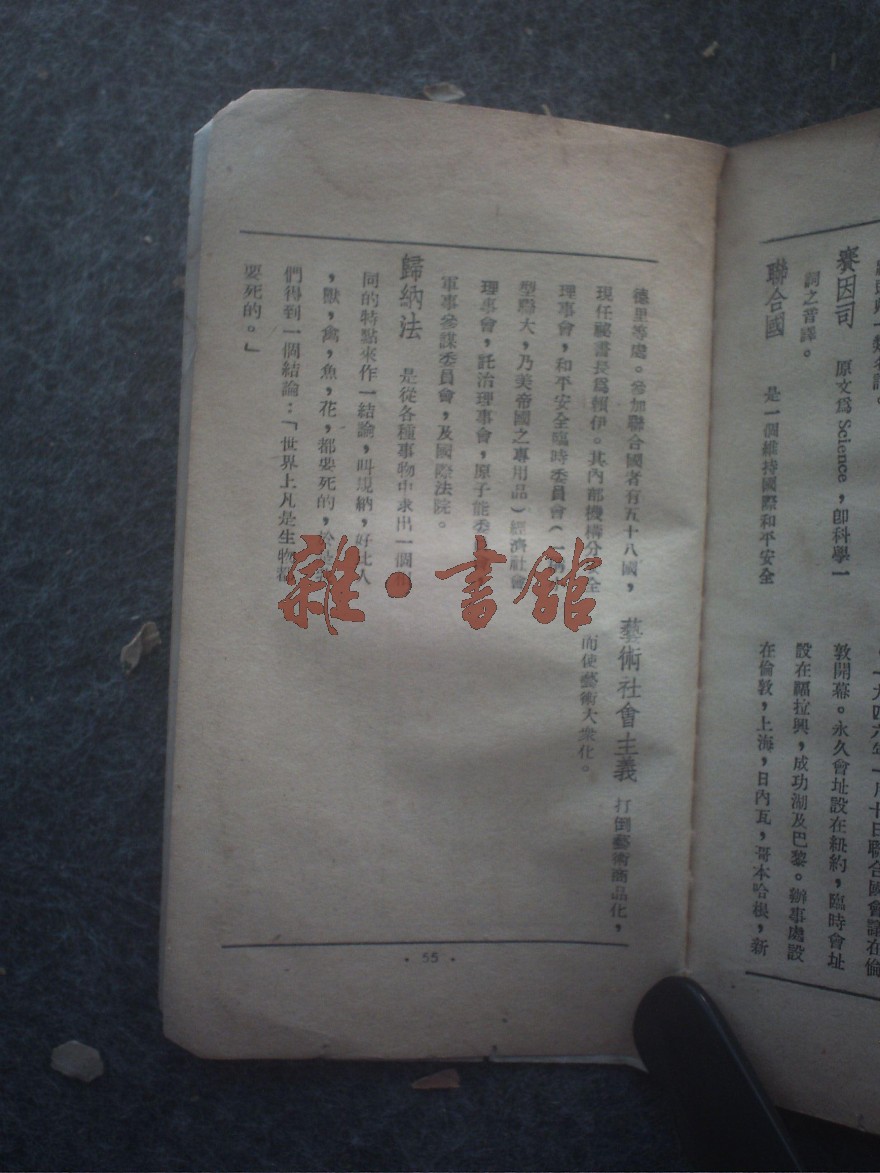 一類名詞。
賽因司 原文爲Science，卽科學一
詞之音譯。
聯合國 是一個維持國際和平安全
一九四六年一月十日聯合國會議在倫
敦開幕。永久會址設在紐約，臨時會址
設在福拉興，成功湖及巴黎。辦事處設
在倫敦，上海，日內瓦，哥本哈根，新
德里等處。參加聯合國者有五十八國，
現任祕書長爲賴伊。其內部機構分 全
理事會，和平安全臨時委員會（
型聯大，乃美帝國之專用品）經濟社會
理事會，託治理事會，原子能委
軍事參謀委員會，及國際法院。
歸納法 是從各種事物中求出一個
同的特點來作一結論，叫規納，好比人
，獸，禽，魚，花，都要死的，於
們得到一個結論：「世界上凡是生物都
要死的。」
藝術社會主義 打倒藝術商品化，
而使藝術大衆化。
·55·
雜·書館